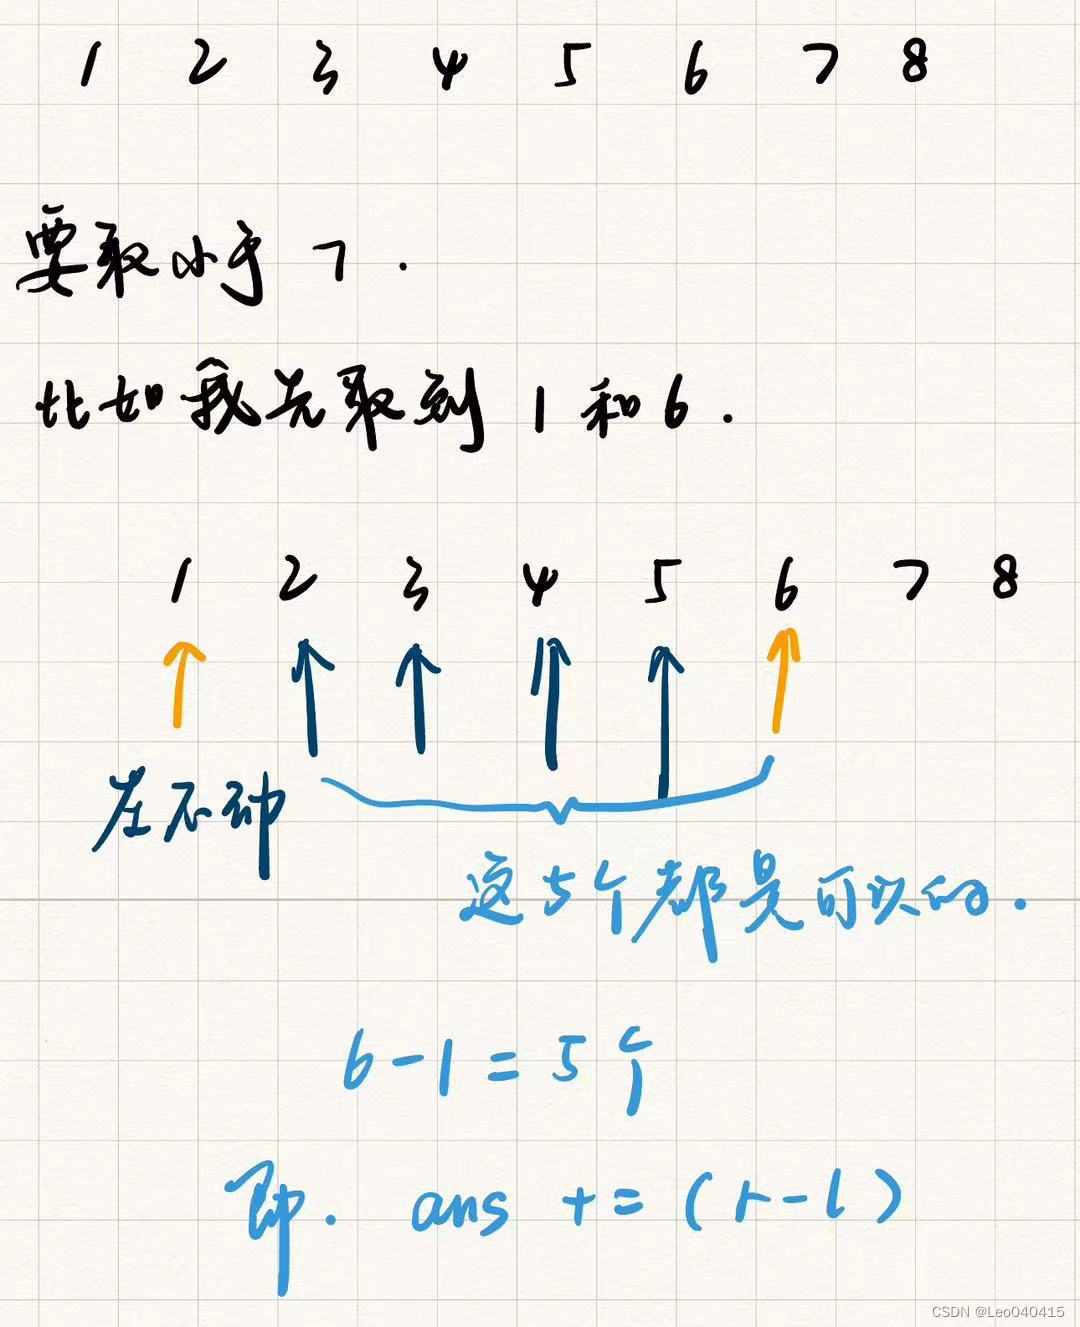 1 2 3 4 5 6 7 8
要取小于 7.
比如我先取到 1 和 6.
1 2 3 4 5 6 7 8
左不动
这5个都是可以的.
6-1=5个
即. ans += (r-l)
CSDN @Leo040415